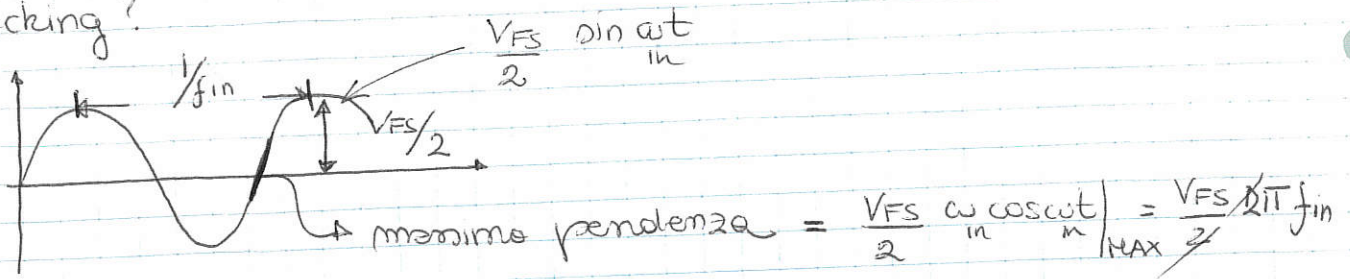 cking?
1/fin
VFS/2 sin ωin t
VFS/2
massima pendenza = VFS/2 ωin cos ωin t |MAX = VFS/2 2π fin